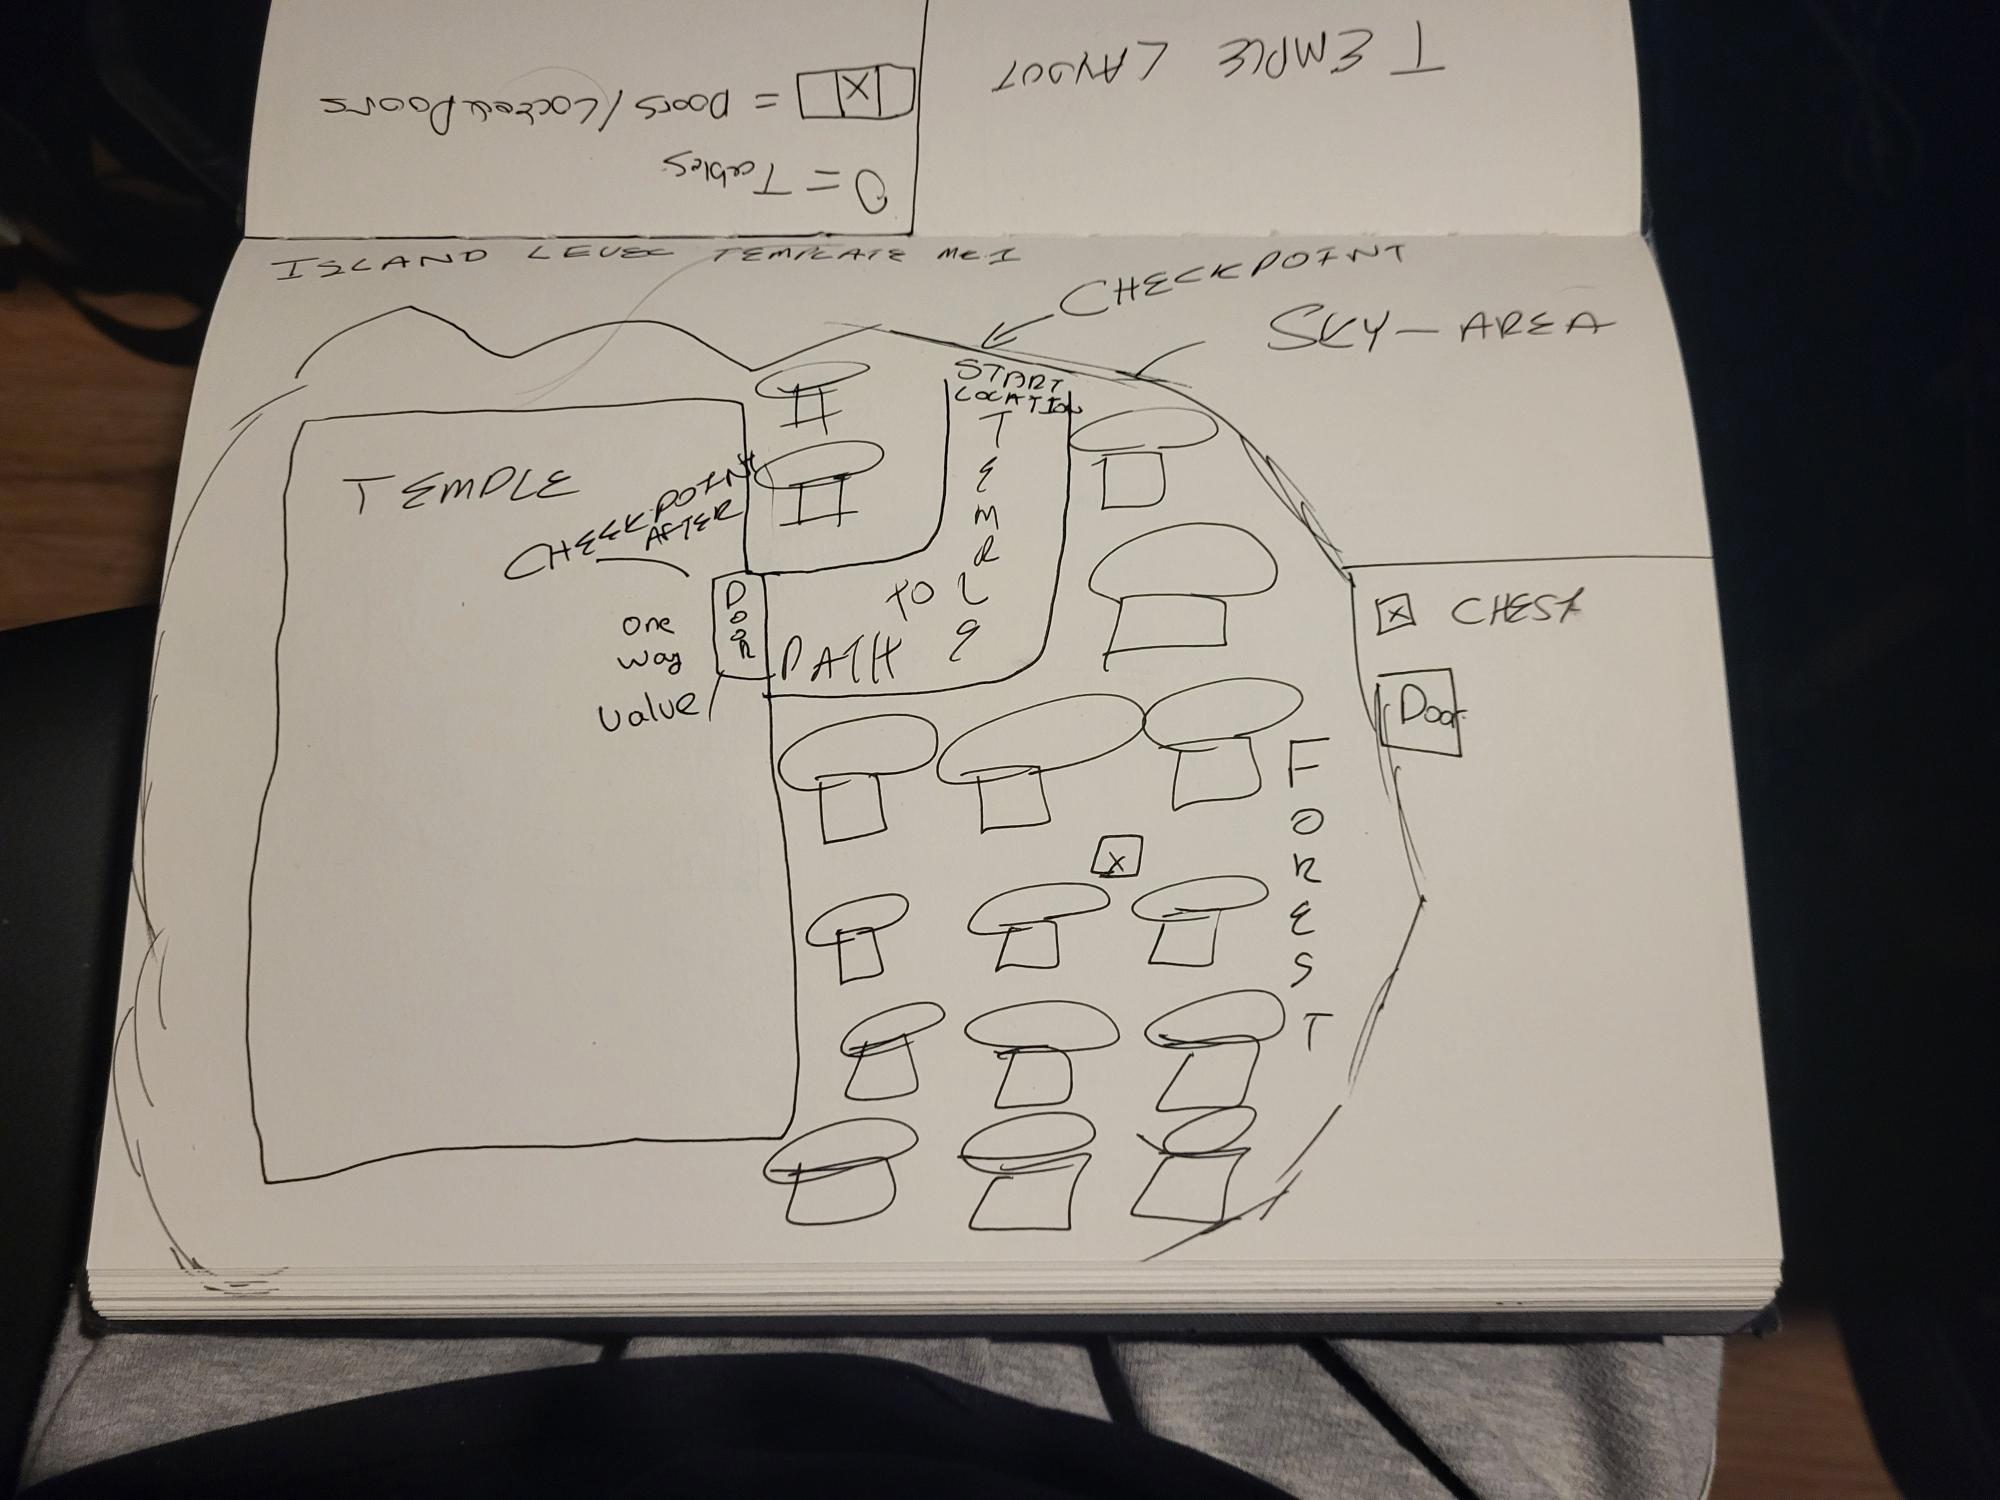 TEMPLE LAYOUT
X = Doors/Locked Doors
O = Tables
ISLAND LEVEL TEMPLATE
CHECKPOINT
SKY-AREA
START
LOCATION
TEMPLE
TEMPLE
CHECKPOINT
AFTER
DOOR
One
way
value
PATH
to
X CHEST
Door
FOREST
X